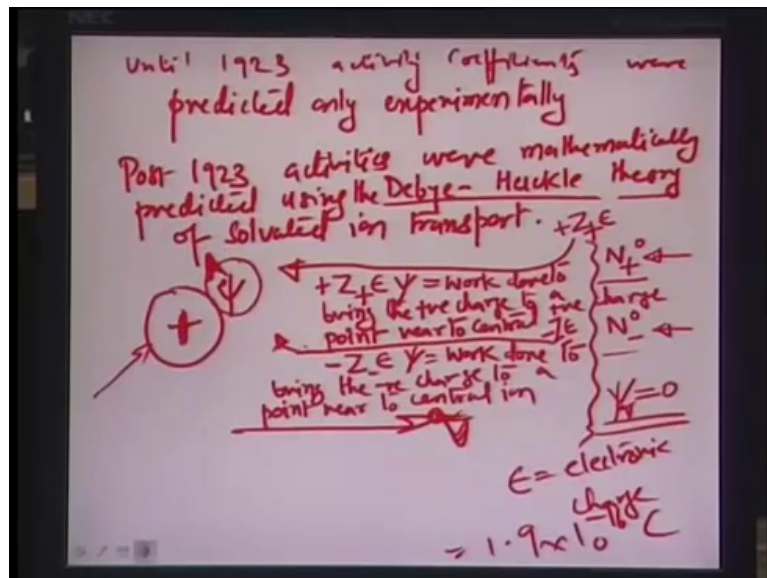 NEC
Until 1923 activity Coefficients were
predicted only experimentally
Post 1923 activities were mathematically
predicted using the Debye-Huckle theory
of solvated ion transport.
+Z+ε
+
ψ
+Z+εψ = work done to
bring the +ve charge to a
point near to central +ve charge
-Zε
-Z-εψ = work done to
bring the -ve charge to a
point near to central ion
N+°
N-°
ψ=0
ε = electronic
charge
= 1.9x10 C